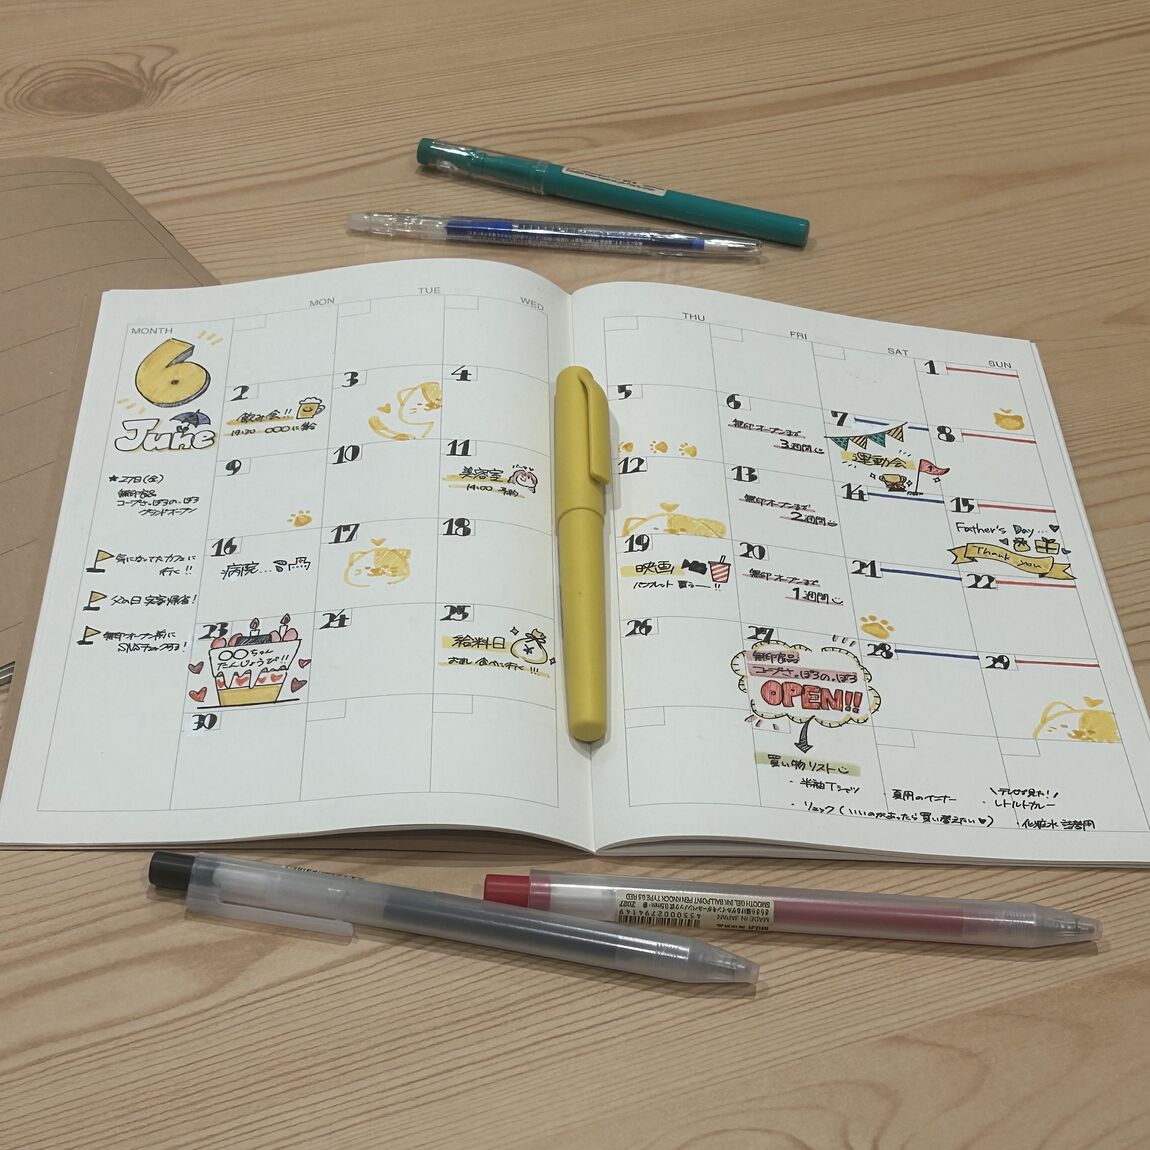 MONTH
MON
TUE
WED
THU
FRI
SAT
SUN
6
June
★27日(金)
無印良品
コープさっぽろのっぽろ
グランドオープン
気になってたカフェに
行く!!
父の日 実家帰省!
無印オープン前に
SNSチェックする!
1
2
飲み会!!
19:30 ○○○に集合
3
4
5
6
無印オープンまで
3週間
7
運動会
8
9
10
11
美容室
14:00 予約
12
13
無印オープンまで
2週間
14
15
Father's Day...
Thank you
16
病院...
17
18
19
映画
パンフレット買うー!!
20
無印オープンまで
1週間
21
22
23
○○ちゃん
たんじょうび!!
24
25
給料日
¥
お寿し食べに行く!!
26
27
無印良品
コープさっぽろのっぽろ
OPEN!!
28
29
30
買い物リスト
・半袖Tシャツ
・夏用のインナー
\テレビで見た!/
・レトルトカレー
・リュック(いいのがあったら買い替えたい♥)
・化粧水 詰替用
MUJI 無印良品
MADE IN JAPAN
さらさら描けるゲルインキボールペンノック式0.5mm・赤
SMOOTH GEL INK BALLPOINT PEN KNOCK TYPE 0.5 RED
4550002794149